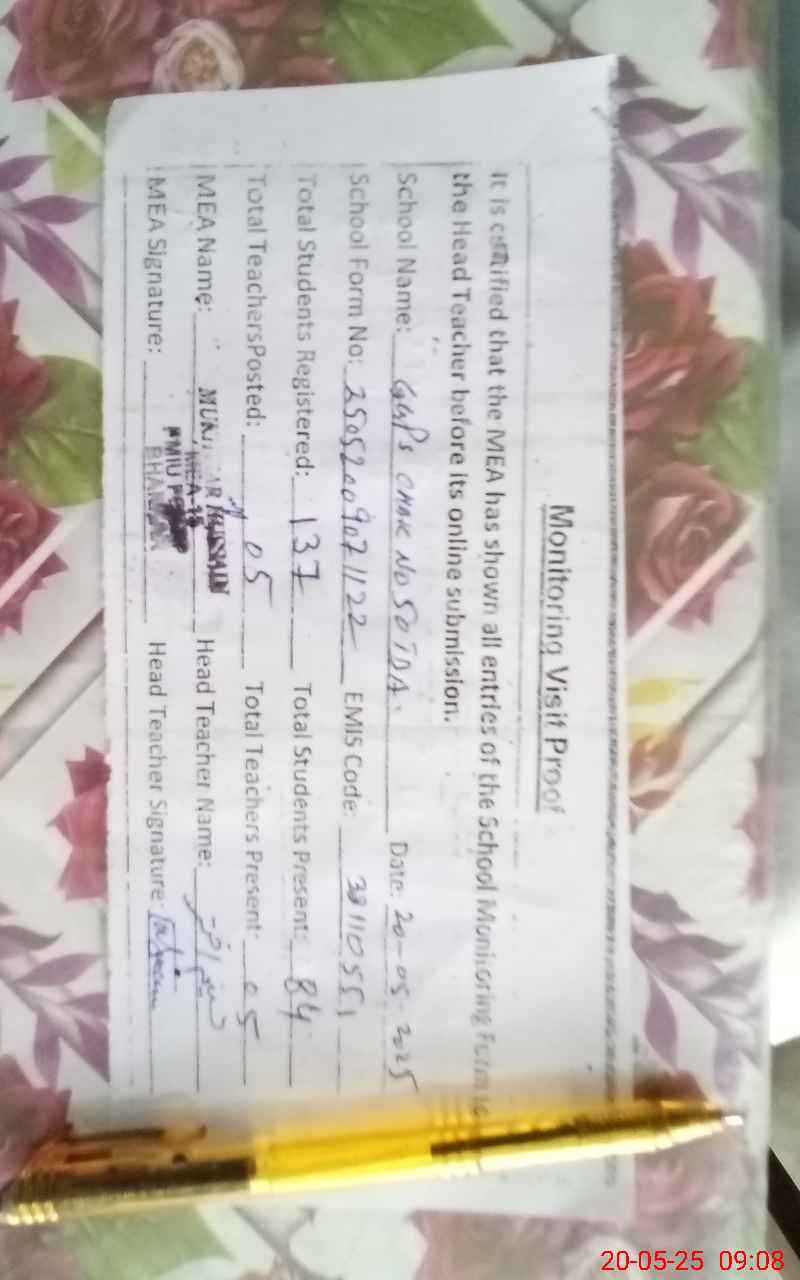 Monitoring Visit Proof
It is certified that the MEA has shown all entries of the School Monitoring Form to
the Head Teacher before its online submission.
School Name: GGPS CHAK NO 50 TDA. Date: 20-05-2025
School Form No: 2505200907 1122 EMIS Code:
Total Students Registered: 137 Total Students Present: 84
Total TeachersPosted: 05 Total Teachers Present: 05
MEA Name: HUSSAIN Head Teacher Name:
MEA-15
PMIU
BHAKKAR
MEA Signature: Head Teacher Signature:
20-05-25 09:08